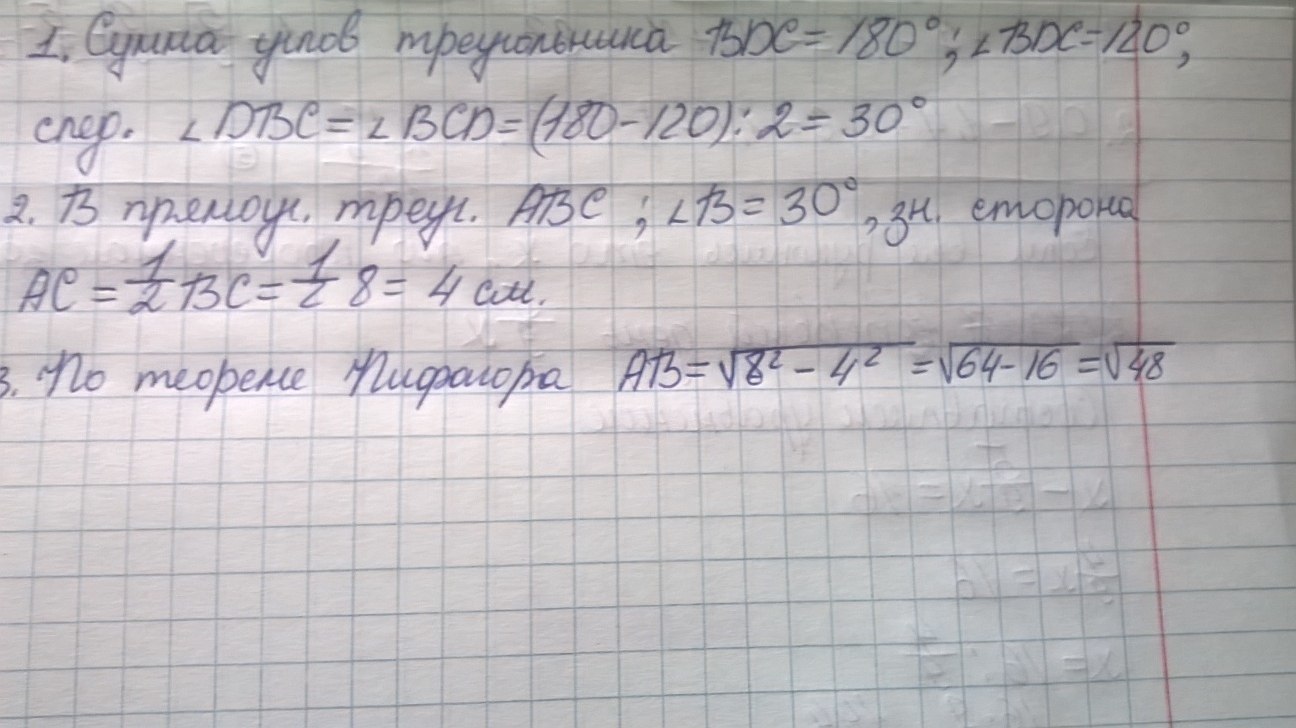 1. Сумма углов треугольника BDC = 180°; ∠BDC = 120°,
след. ∠DBC = ∠BCD = (180 - 120) : 2 = 30°
2. В прямоуг. треуг. ABC ; ∠B = 30°, зн. сторона
AC = 1/2 BC = 1/2 8 = 4 см.
3. По теореме Пифагора AB = √8² - 4² = √64-16 = √48